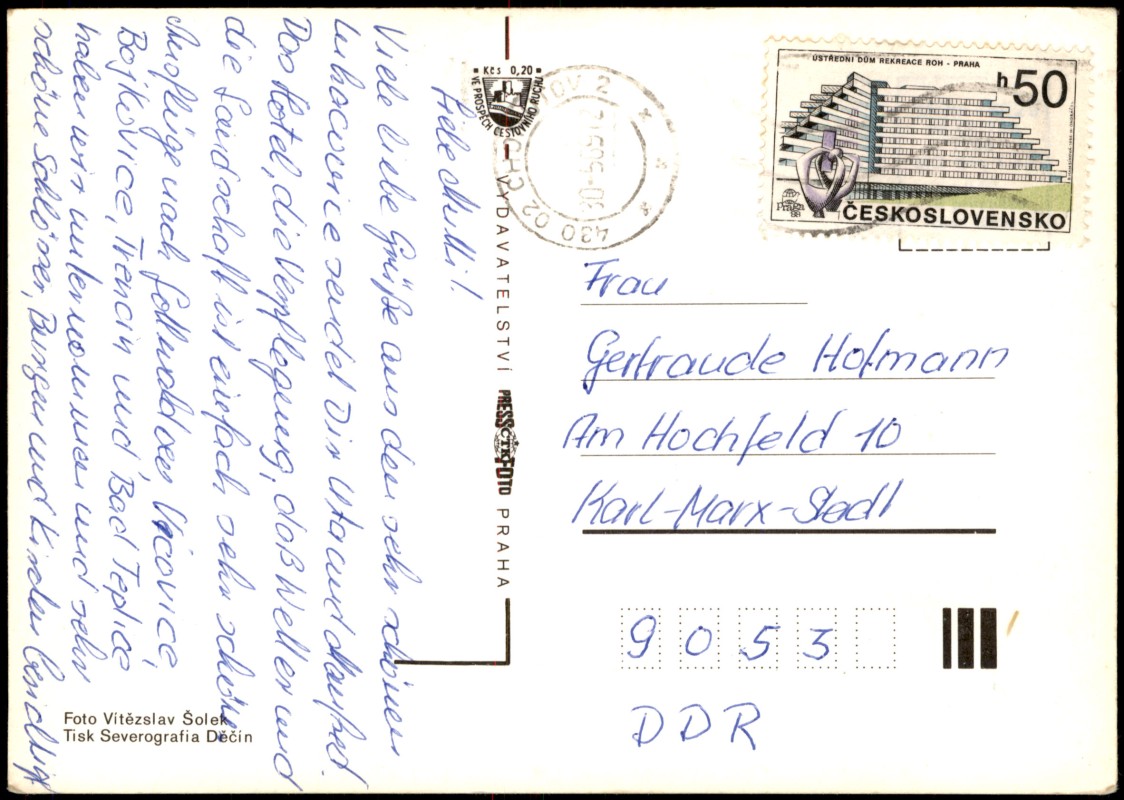 Liebe Mutti!
Viele liebe Grüße aus dem sehr schönen
Luhacovice sendet Dir Uta und Manfred.
Das Hotel, die Verpflegung, das Wetter und
die Landschaft ist einfach sehr schön.
Ausflüge nach Gottwaldov, Vizovice,
Bojkovice, Trencin und Bad Teplice
haben wir unternommen und sehr
schöne Schlösser, Burgen und Kirchen besichtigt
Foto Vítězslav Šolek
Tisk Severografia Děčín
Kčs 0,20
VE PROSPĚCH CESTOVNÍHO RUCHU
VYDAVATELSTVÍ PRESSFOTO PRAHA
ČTK
430 02
ÚSTŘEDNÍ DŮM REKREACE ROH - PRAHA
h 50
Praga 88
ČESKOSLOVENSKO
Frau
Gertraude Hofmann
Am Hochfeld 10
Karl-Marx-Stadt
9053
DDR